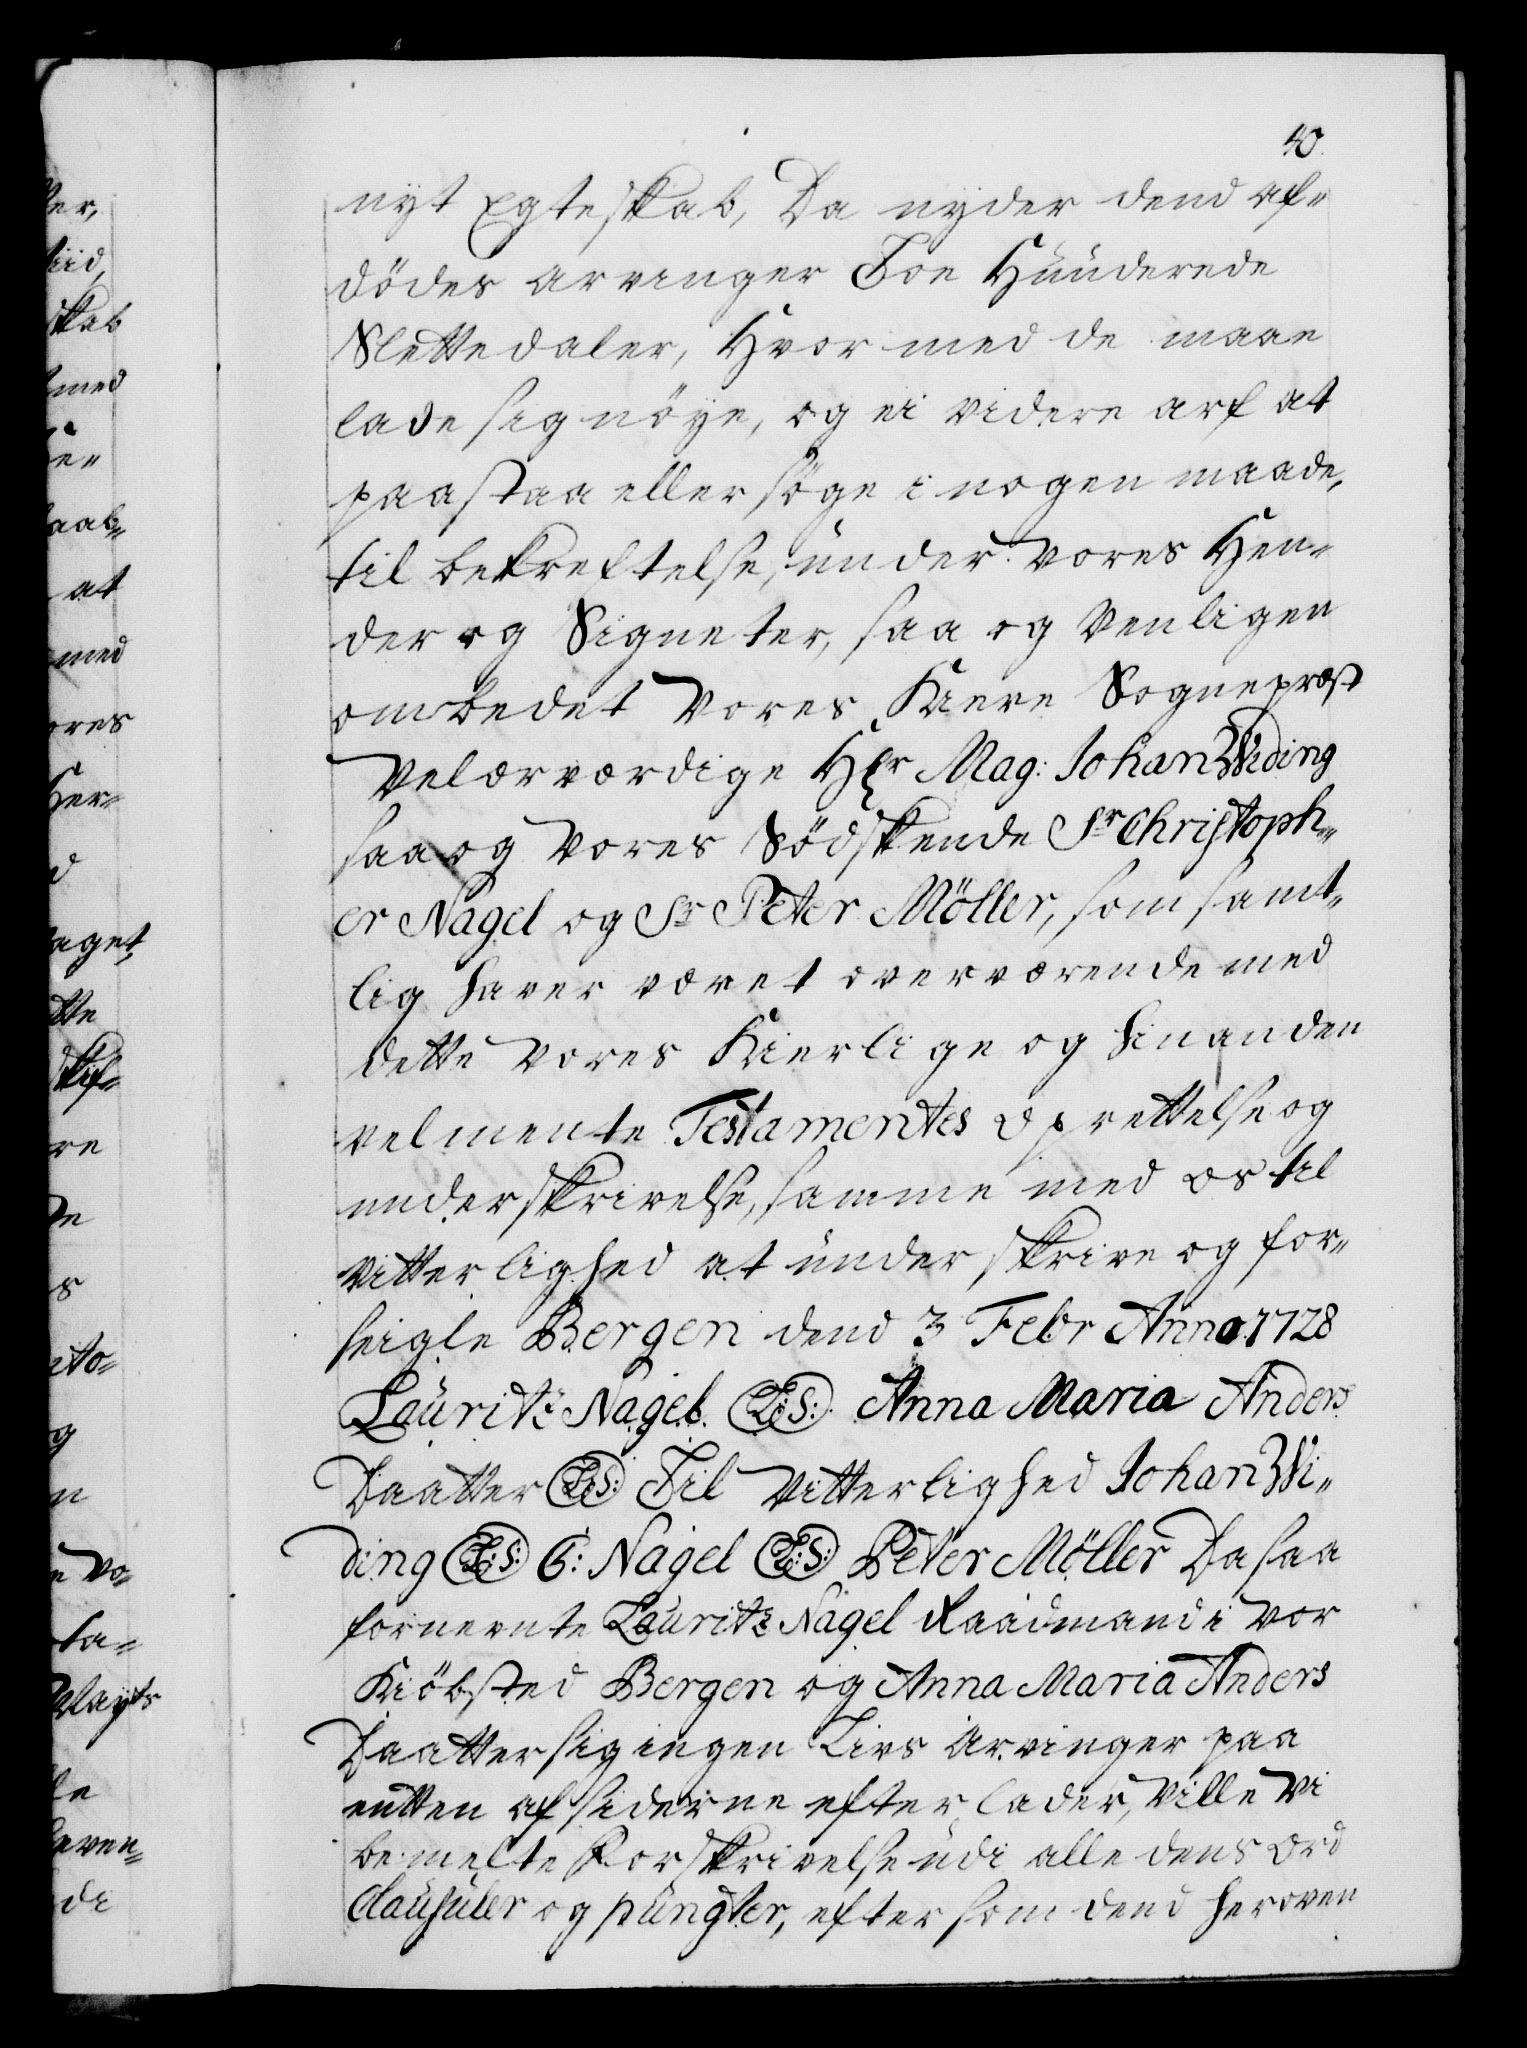 40.
nyt Egteskab, Da nyder dend af-
dödes arvinger Toe Hunderede
Slettedaler, Hvor med de maae
lade sig nöye, og ei videre arf at
paastaa eller söge i nogen maade,
til bekreftelse, under vores Hen-
der og Signeter, saa og Venligen
ombedet Vores Kiere Sogneprest
Velærværdige Hr Mag: Johan Widing
saa og Vores Södskende Sr Christoph-
er Nagel og Sr Peter Möller, som samt-
lig haver været overværende med
dette Vores Kierlige og hinanden
velmente Testamentes oprettelse og
underskrivelse, samme med os til
Vitterlighed at underskrive og for-
seigle Bergen dend 3 Febr Anno 1728
Lauritz Nagel (L:S:) Anna Maria Anders
Daatter (L:S:) Til Vitterlighed Johan Wi-
ding (L:S:) C: Nagel (L:S:) Peter Möller Da saa
fornevnte Lauritz Nagel Raadmand i Vor
Kiöbsted Bergen og Anna Maria Anders
Daatter sig ingen Livs Arvinger paa
entten af siderne efterlader, Ville Vi
bemelte Forskrivelse udi alle dens Ord
Clausuler og puncter, efter som dend heroven